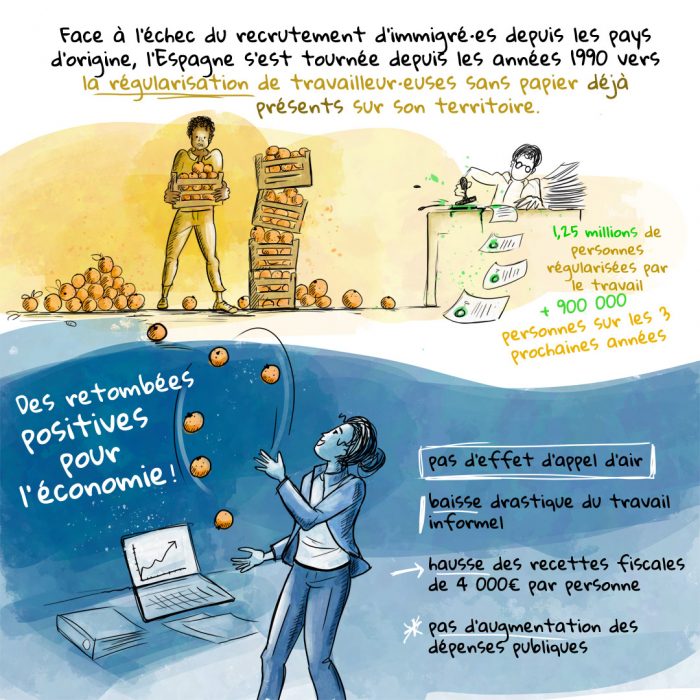 Face à l'échec du recrutement d'immigré·es depuis les pays
d'origine, l'Espagne s'est tournée depuis les années 1990 vers
la régularisation de travailleur·euses sans papier déjà
présents sur son territoire.
1,25 millions de
personnes
régularisées par
le travail
+ 900 000
personnes sur les 3
prochaines années
Des retombées
positives
pour
l'économie!
pas d'effet d'appel d'air
baisse drastique du travail
informel
hausse des recettes fiscales
de 4 000€ par personne
pas d'augmentation des
dépenses publiques